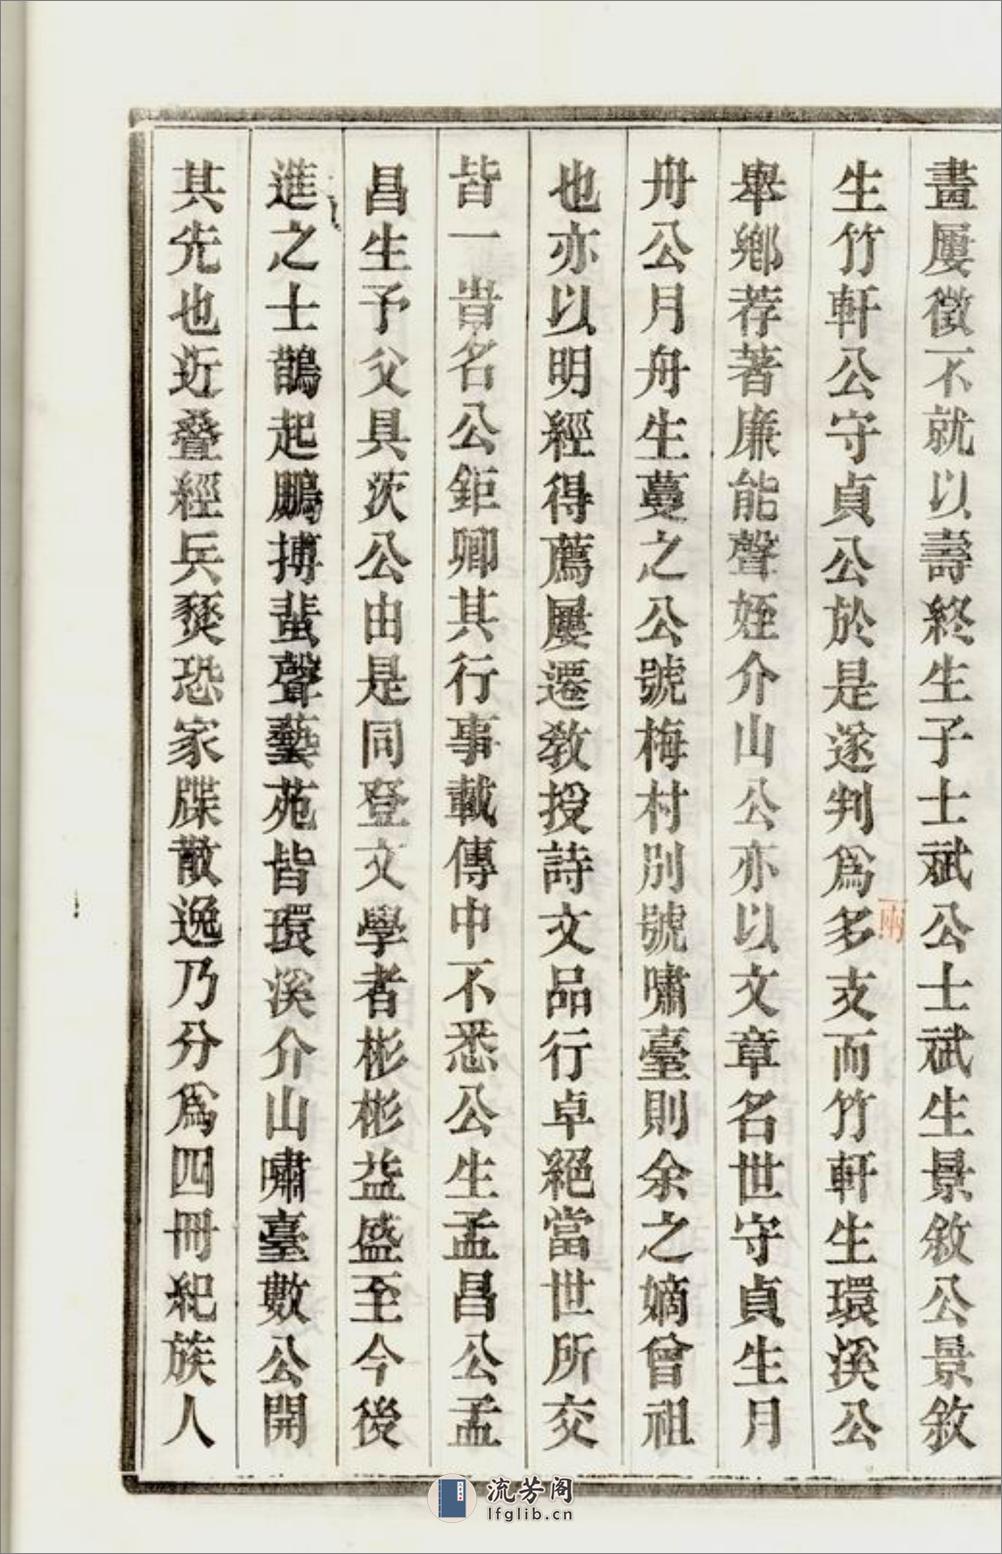 畫屢徵不就以壽終生子士斌公士斌生景敘公景敘
生竹軒公守貞公於是遂判爲多支而竹軒生環溪公
兩
舉鄉荐著廉能聲姪介山公亦以文章名世守貞生月
舟公月舟生蔓之公號梅村別號嘯臺則余之嫡曾祖
也亦以明經得薦屢遷教授詩文品行卓絕當世所交
皆一時名公鉅卿其行事載傳中不悉公生孟昌公孟
昌生予父具茨公由是同登文學者彬彬益盛至今後
進之士鵲起鵬搏蜚聲藝苑皆環溪介山嘯臺數公開
其先也近叠經兵燹恐家牒散逸乃分爲四冊紀族人
流芳阁
lfglib.cn